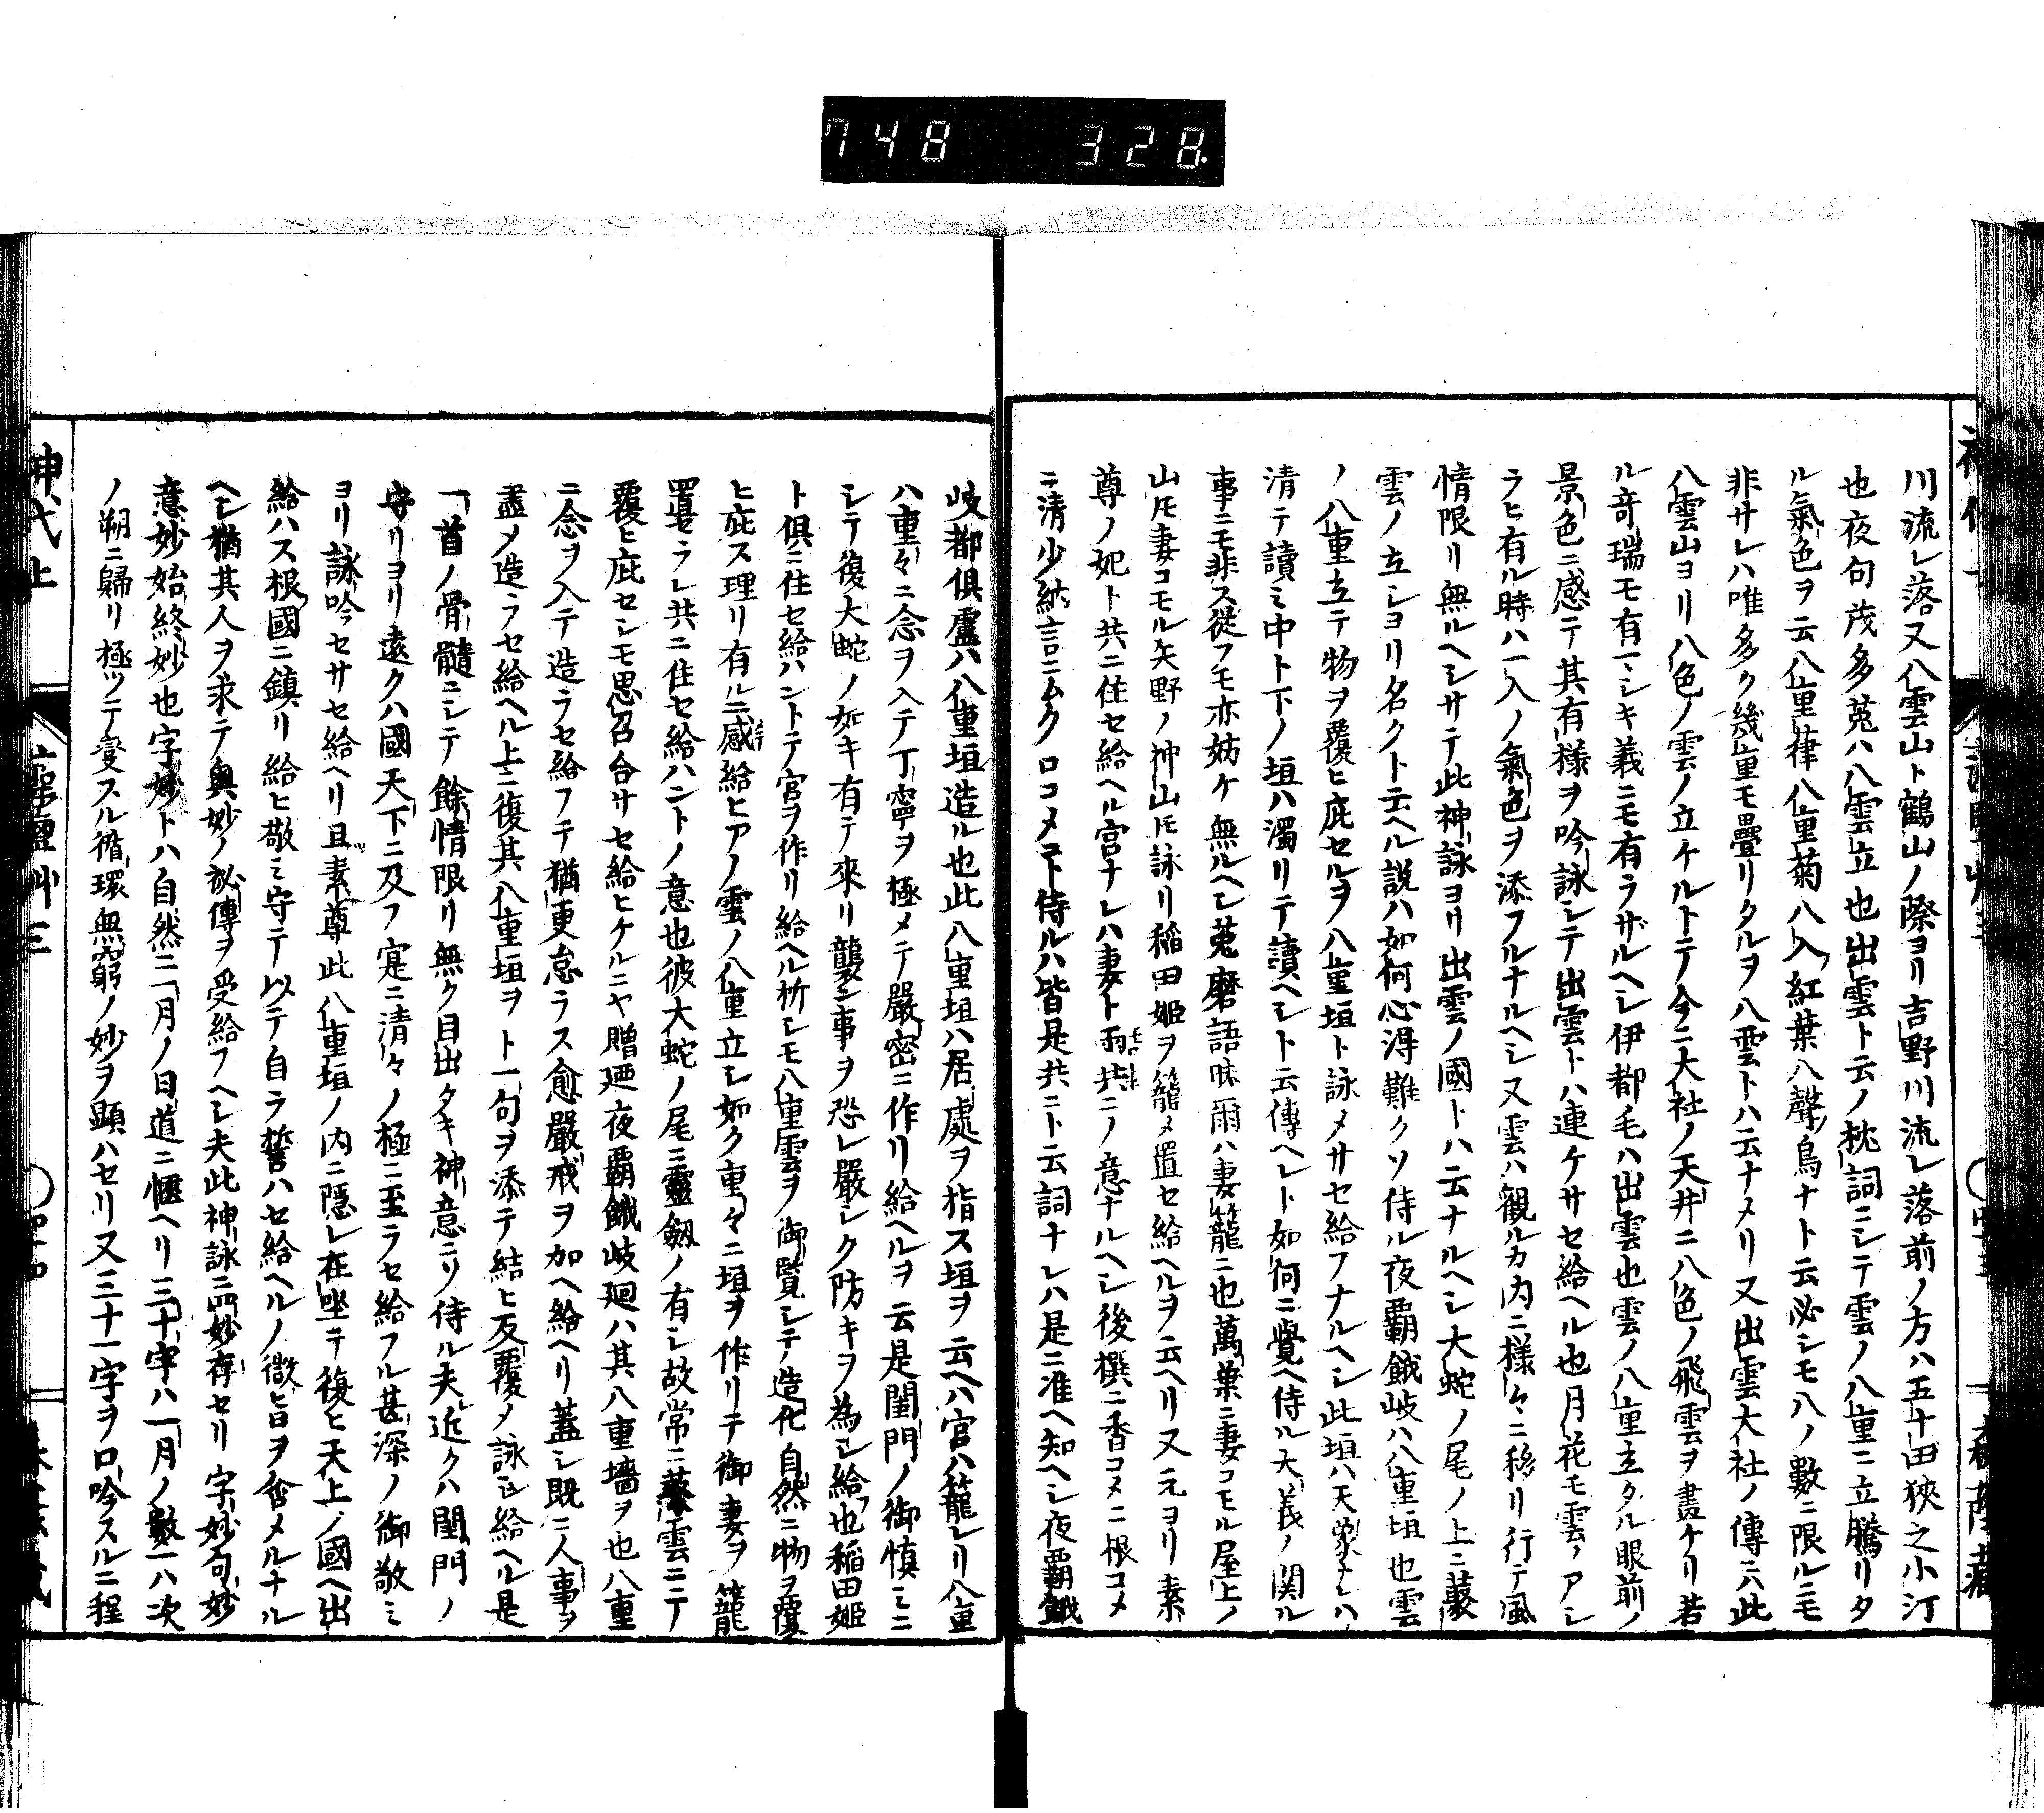 748 328
川流レ落又八雲山ト鶴山ノ際ヨリ吉野川流レ落前ノ方ハ五十田狹之小汀
也夜句茂多菟ハ八雲立也出雲ト云ノ枕詞ニシテ雲ノ八重ニ立騰リタ
ル氣色ヲ云八重葎八重菊八入紅葉八聲鳥ナト云必シモ八ノ數ニ限ルニモ
非サレハ唯多ク幾重モ疊リタルヲ八雲トハ云ナメリ又出雲大社ノ傳ニ六此
八雲山ヨリ八色ノ雲ノ立ケルトテ今ニ大社ノ天井ニ八色ノ飛雲ヲ畫ケリ若
ル奇瑞モ有ヘシキ義ニモ有ラザルヘシ伊都毛ハ出雲也雲ノ八重立タル眼前ノ
景色ニ感テ其有様ヲ吟詠シテ出雲トハ連ケサセ給ヘル也月花モ雲ノアシ
ラヒ有ル時ハ一入ノ氣色ヲ添フルナルヘシ又雲ハ觀ルカ内ニ様々ニ移リ行テ風
情限リ無ルヘシサテ此神詠ヨリ出雲ノ國トハ云ナルヘシ大蛇ノ尾ノ上ニ蘙
雲ノ立シヨリ名クト云ヘル説ハ如何心得難クソ侍ル夜覇餓岐ハ八重垣也雲
ノ八重立テ物ヲ覆ヒ庇セルヲ八重垣ト詠メサセ給フナルヘシ此垣ハ天象ナレハ
清テ讀ミ中ト下ノ垣ハ濁リテ讀ヘシト云傳ヘレト如何ニ覺ヘ侍ル大義ノ関ル
事ニモ非ス從フモ亦妨ケ無ルヘシ菟磨語昧爾ハ妻籠ニ也萬葉ニ妻コモル屋上ノ
山妻コモル矢野ノ神山詠リ稲田姫ヲ籠メ置セ給ヘルヲ云ヘリ又元ヨリ素
尊ノ妃ト共ニ住セ給ヘル宮ナレハ妻ト両共ニノ意ナルヘシ後撰ニ香コメニ根コメ
ニ清少納言ニムク口コメニト侍ルハ皆是共ニト云詞ナレハ是ニ准ヘ知ヘシ夜覇餓
岐都倶盧ハ八重垣造ル也此八重垣ハ居處ヲ指ス垣ヲ云ヘハ宮ハ籠レリ八重
ハ重々ニ念ヲ入テ丁寧ヲ極メテ嚴密ニ作リ給ヘルヲ云是閨門ノ御慎ミニ
シテ復大蛇ノ如キ有テ來リ襲ン事ヲ恐レ嚴シク防キヲ為シ給也稲田姫
ト俱ニ住セ給ハントテ宮ヲ作リ給ヘル折シモ八重雲ヲ御覧シテ造化自然ニ物ヲ覆
ヒ庇ス理リ有ルニ感給ヒアノ雲ノ八重立シ如ク重々ニ垣ヲ作リテ御妻ヲ籠
置セラレ共ニ住セ給ハントノ意也彼大蛇ノ尾ニ靈劔ノ有シ故常ニ蘙雲ニテ
覆ヒ庇セシモ思召合サセ給ヒケルニヤ贈廼夜覇餓岐廻ハ其八重墻ヲ也八重
ニ念ヲ入テ造ラセ給フテ猶更怠ラス愈嚴戒ヲ加ヘ給ヘリ蓋シ既ニ人事ヲ
盡メ造ラセ給ヘル上ニ復其八重垣ヲト一句ヲ添テ結ヒ反覆メ詠シ給ヘル是
一首ノ骨髓ニシテ餘情限リ無ク目出タキ神意ニソ侍ル夫近クハ閨門ノ
守リヨリ遠クハ國天下ニ及フ寔ニ清々ノ極ニ至ラセ給フル甚深ノ御敬ミ
ヨリ詠吟セサセ給ヘリ且素尊此八重垣ノ内ニ隠レ在坐テ復ヒ天上ノ國ヘ出
給ハス根國ニ鎮リ給ヒ敬ミ守テ以テ自ラ誓ハセ給ヘルノ微旨ヲ含メルナル
ヘシ猶其人ヲ求テ奥妙ノ祕傳ヲ受給フヘシ夫此神詠ニ四妙存セリ字妙句妙
意妙始終妙也字妙トハ自然ニ一月ノ日道ニ愜ヘリ三十字ハ一月ノ數一ハ次
ノ朔ニ歸リ極ツテ變スル循環無窮ノ妙ヲ顕ハセリ又三十一字ヲ口吟スルニ程
神代上